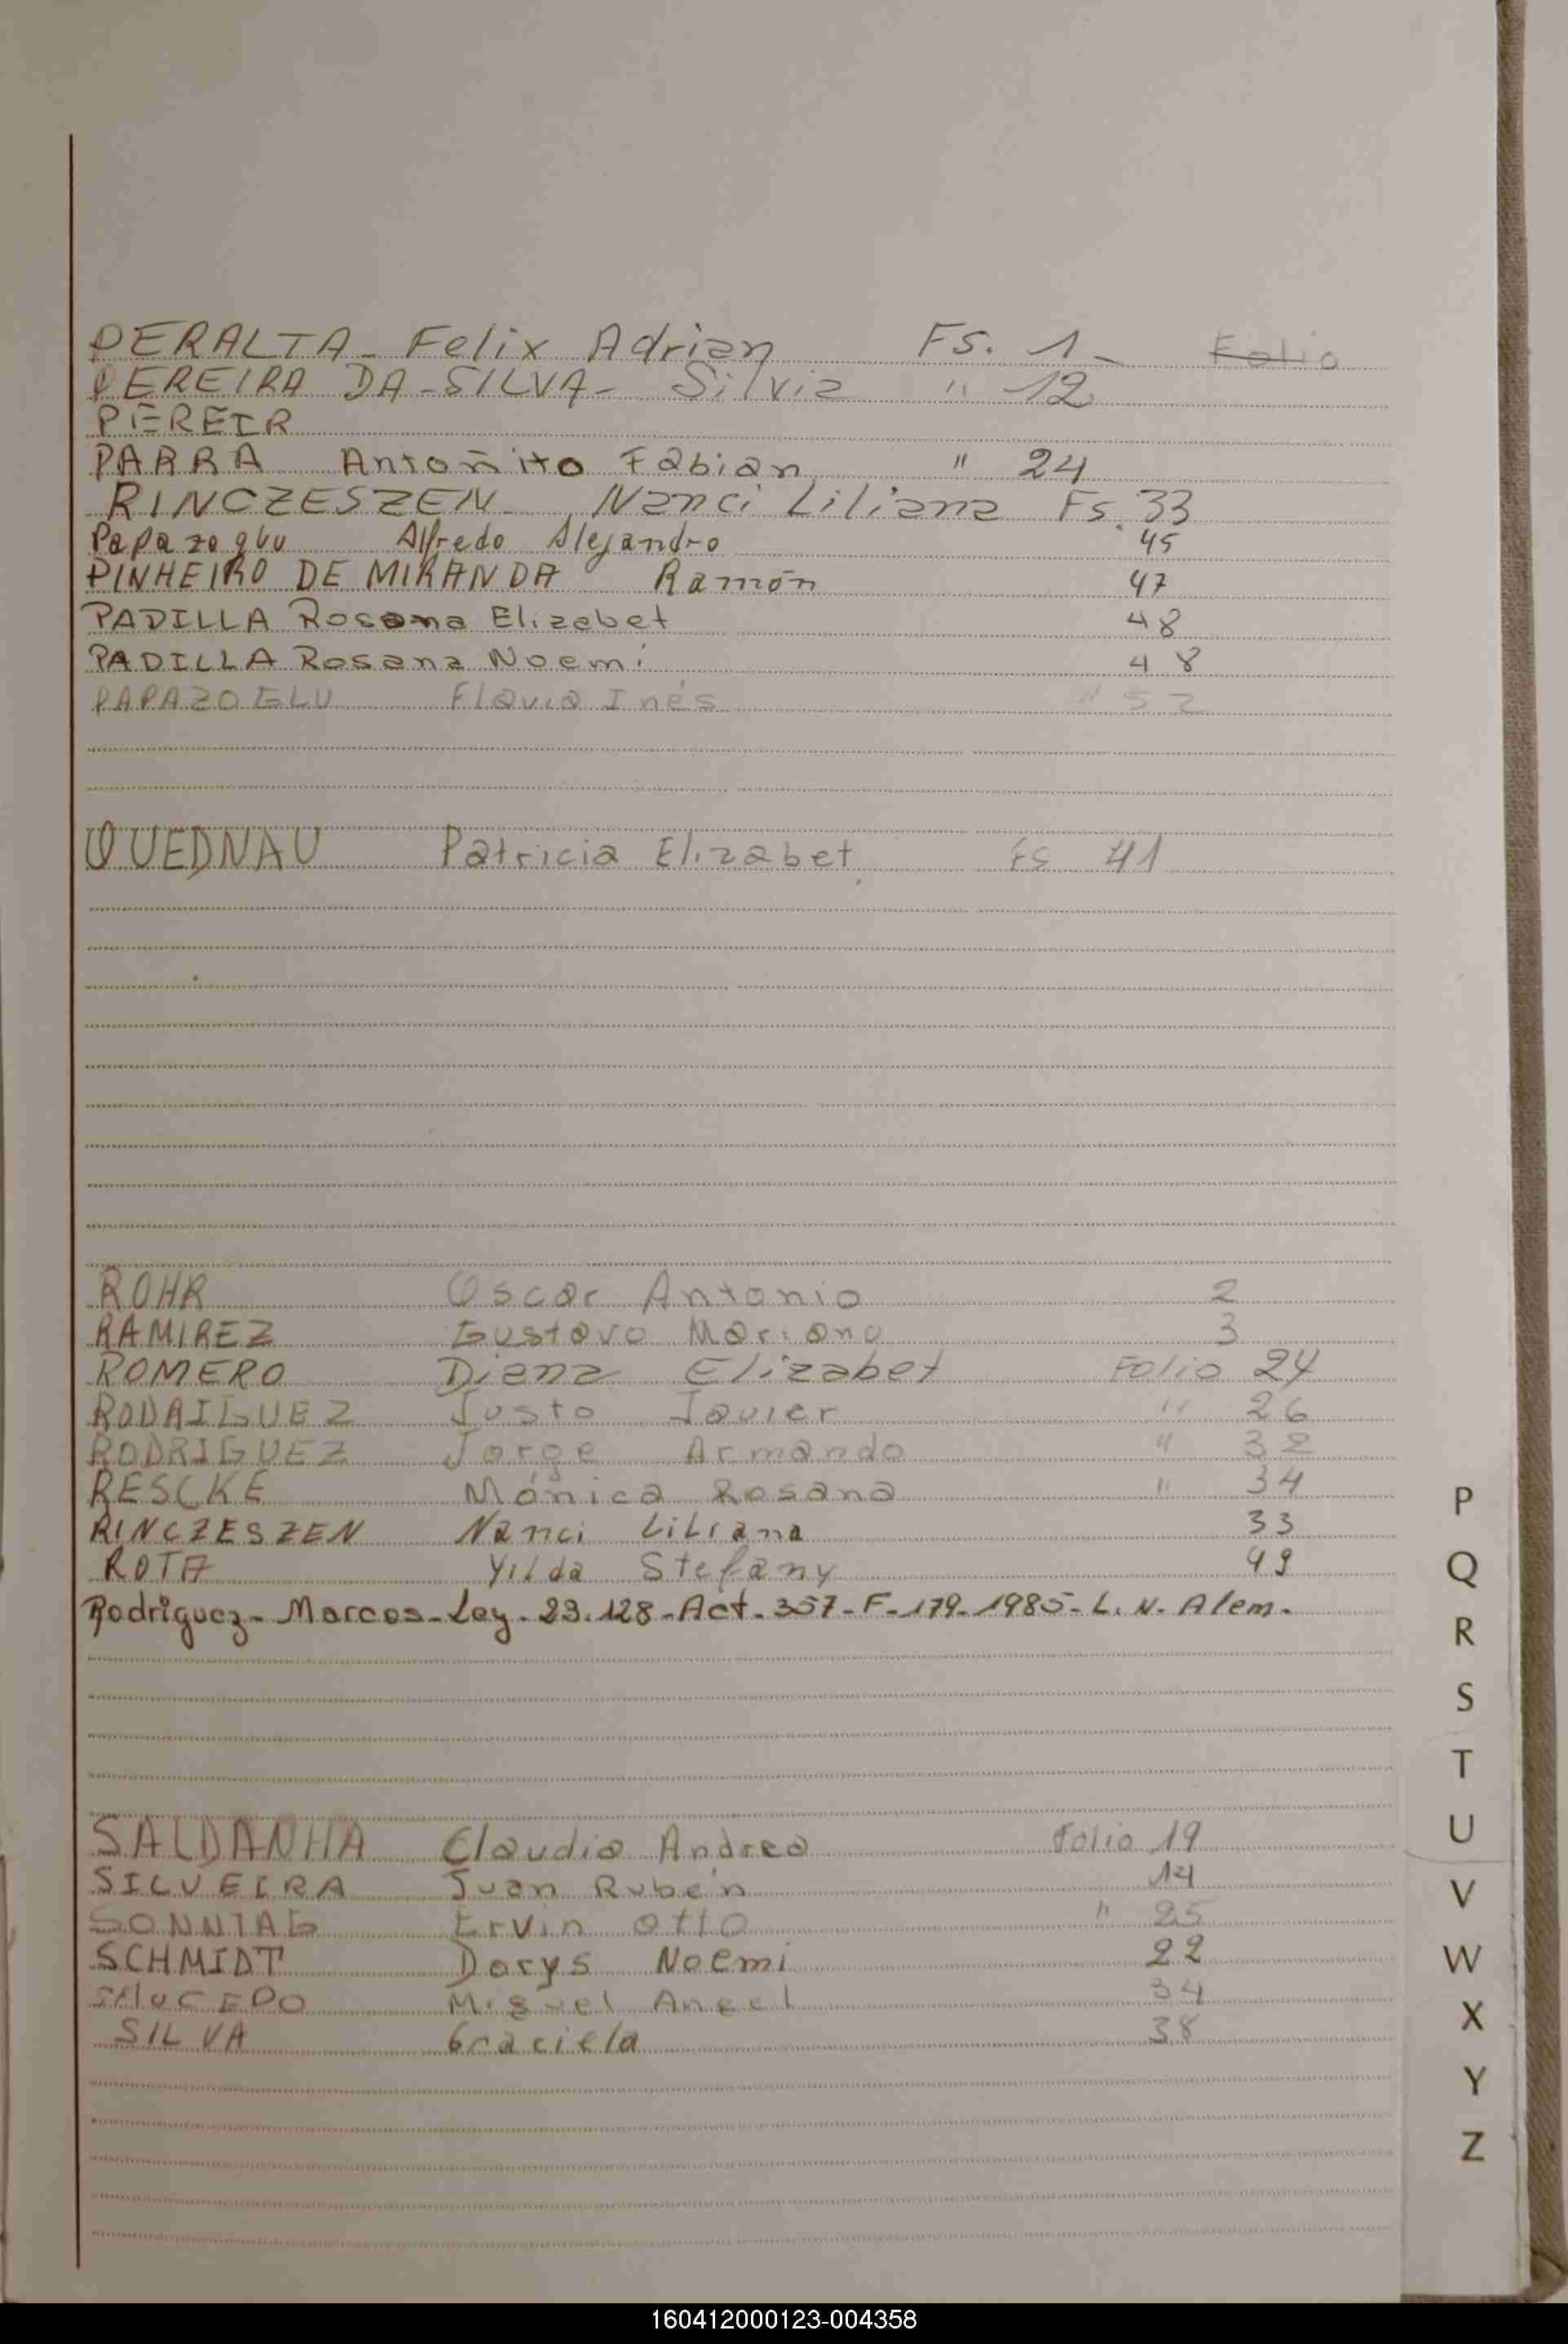 PERALTA - Felix Adrian Fs. 1 - Folio
PEREIRA DA - SILVA - Silvia " 12
PEREIR
PARRA Antoñito Fabian " 24
RINCZESZEN Nanci Liliana Fs. 33
Alfredo Alejandro 45
PINHEIRO DE MIRANDA Ramón 47
PADILLA Rosana Elizabet 48
PADILLA Rosana Noemi 48
PAPAZOGLU Flavia Inés " 52
QUEDNAU Patricia Elizabet Fs 41
ROHR Oscar Antonio 2
RAMIREZ Gustavo Mariano 3
ROMERO Diana Elizabet Folio 24
RODRIGUEZ Justo Javier " 26
RODRIGUEZ Jorge Armando " 32
RESCKE Mónica Rosana " 34
RINCZESZEN Nanci Liliana 33
ROTA Yilda Stefany 49
Rodriguez - Marcos - Ley - 23.128 - Act - 357 - F - 179 - 1985 - L. N. Alem -
SALDANHA Claudia Andrea Folio 19
SILVEIRA Juan Rubén 14
SONNTAG Ervin Otto " 25
SCHMIDT Dorys Noemi 22
SAUCEDO Miguel Angel 34
SILVA Graciela 38
P
Q
R
S
T
U
V
W
X
Y
Z
160412000123-004358